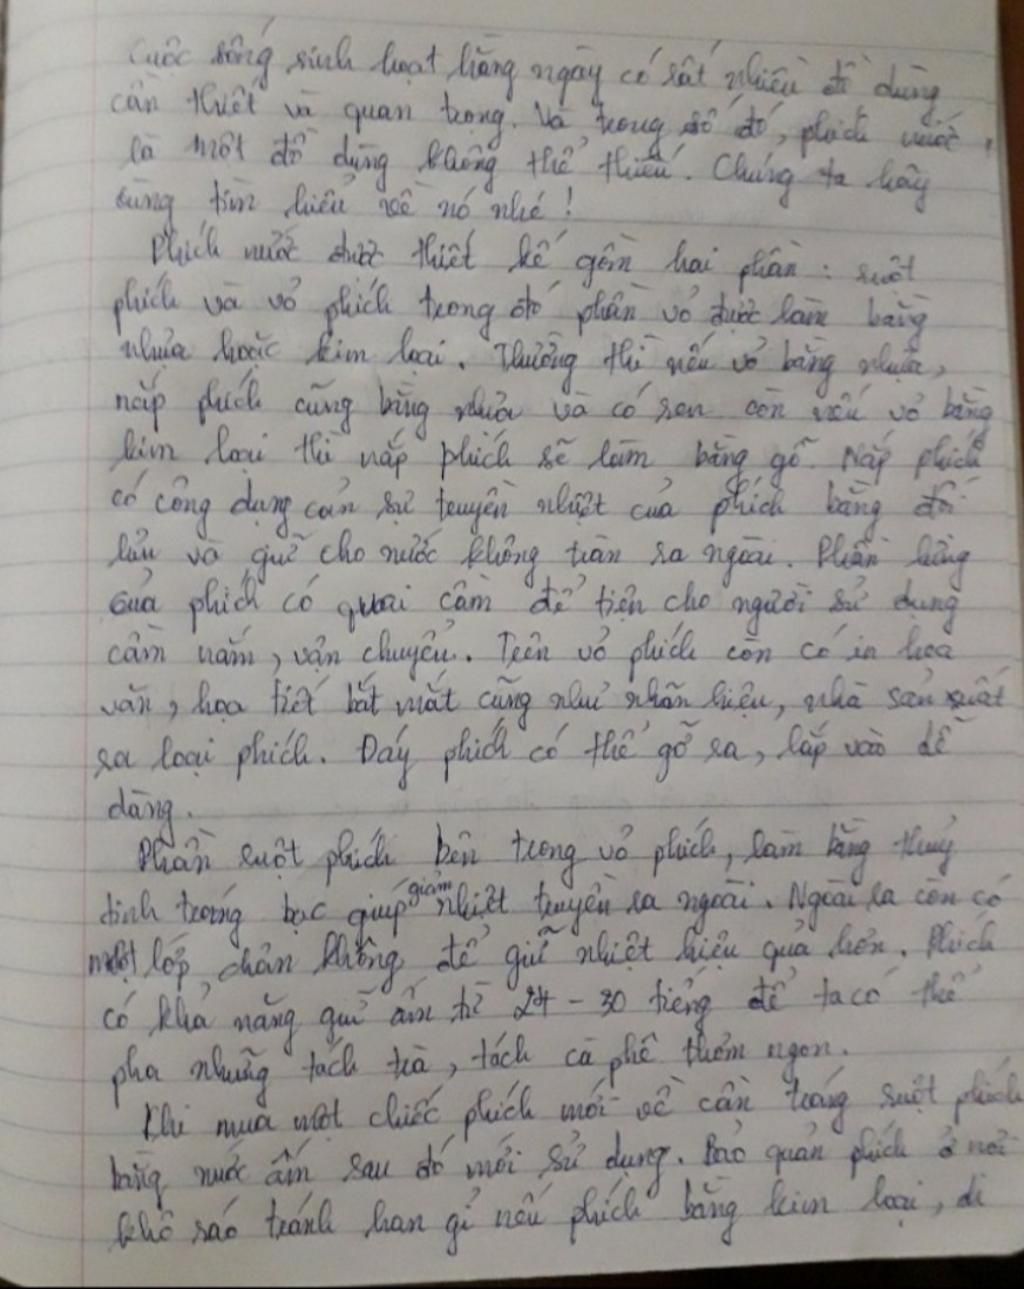 Cuộc sống sinh hoạt hằng ngày có rất nhiều đồ dùng
cần thiết và quan trọng. Và trong số đó, phích nước
là một đồ dùng không thể thiếu. Chúng ta hãy
cùng tìm hiểu về nó nhé!
Phích nước được thiết kế gồm hai phần: ruột
phích và vỏ phích trong đó phần vỏ được làm bằng
nhựa hoặc kim loại. Thường thì nếu vỏ bằng nhựa,
nắp phích cũng bằng nhựa và có ren còn nếu vỏ bằng
kim loại thì nắp phích sẽ làm bằng gỗ. Nắp phích
có công dụng cản sự truyền nhiệt của phích bằng đối
lưu và giữ cho nước không tràn ra ngoài. Phần lưng
của phích có quai cầm để tiện cho người sử dụng
cầm nắm, vận chuyển. Trên vỏ phích còn có in hoa
văn, họa tiết bắt mắt cũng như nhãn hiệu, nhà sản xuất
ra loại phích. Đáy phích có thể gỡ ra, lắp vào dễ
dàng.
Phần ruột phích bên trong vỏ phích, làm bằng thuỷ
tinh tráng bạc giúp giảm nhiệt truyền ra ngoài. Ngoài ra còn có
một lớp chân không để giữ nhiệt hiệu quả hơn. Phích
có khả năng giữ ấm từ 24 - 30 tiếng để ta có thể
pha những tách trà, tách cà phê thơm ngon.
Khi mua một chiếc phích mới về cần tráng ruột phích
bằng nước ấm sau đó mới sử dụng. Bảo quản phích ở nơi
khô ráo tránh han gỉ nếu phích bằng kim loại, để